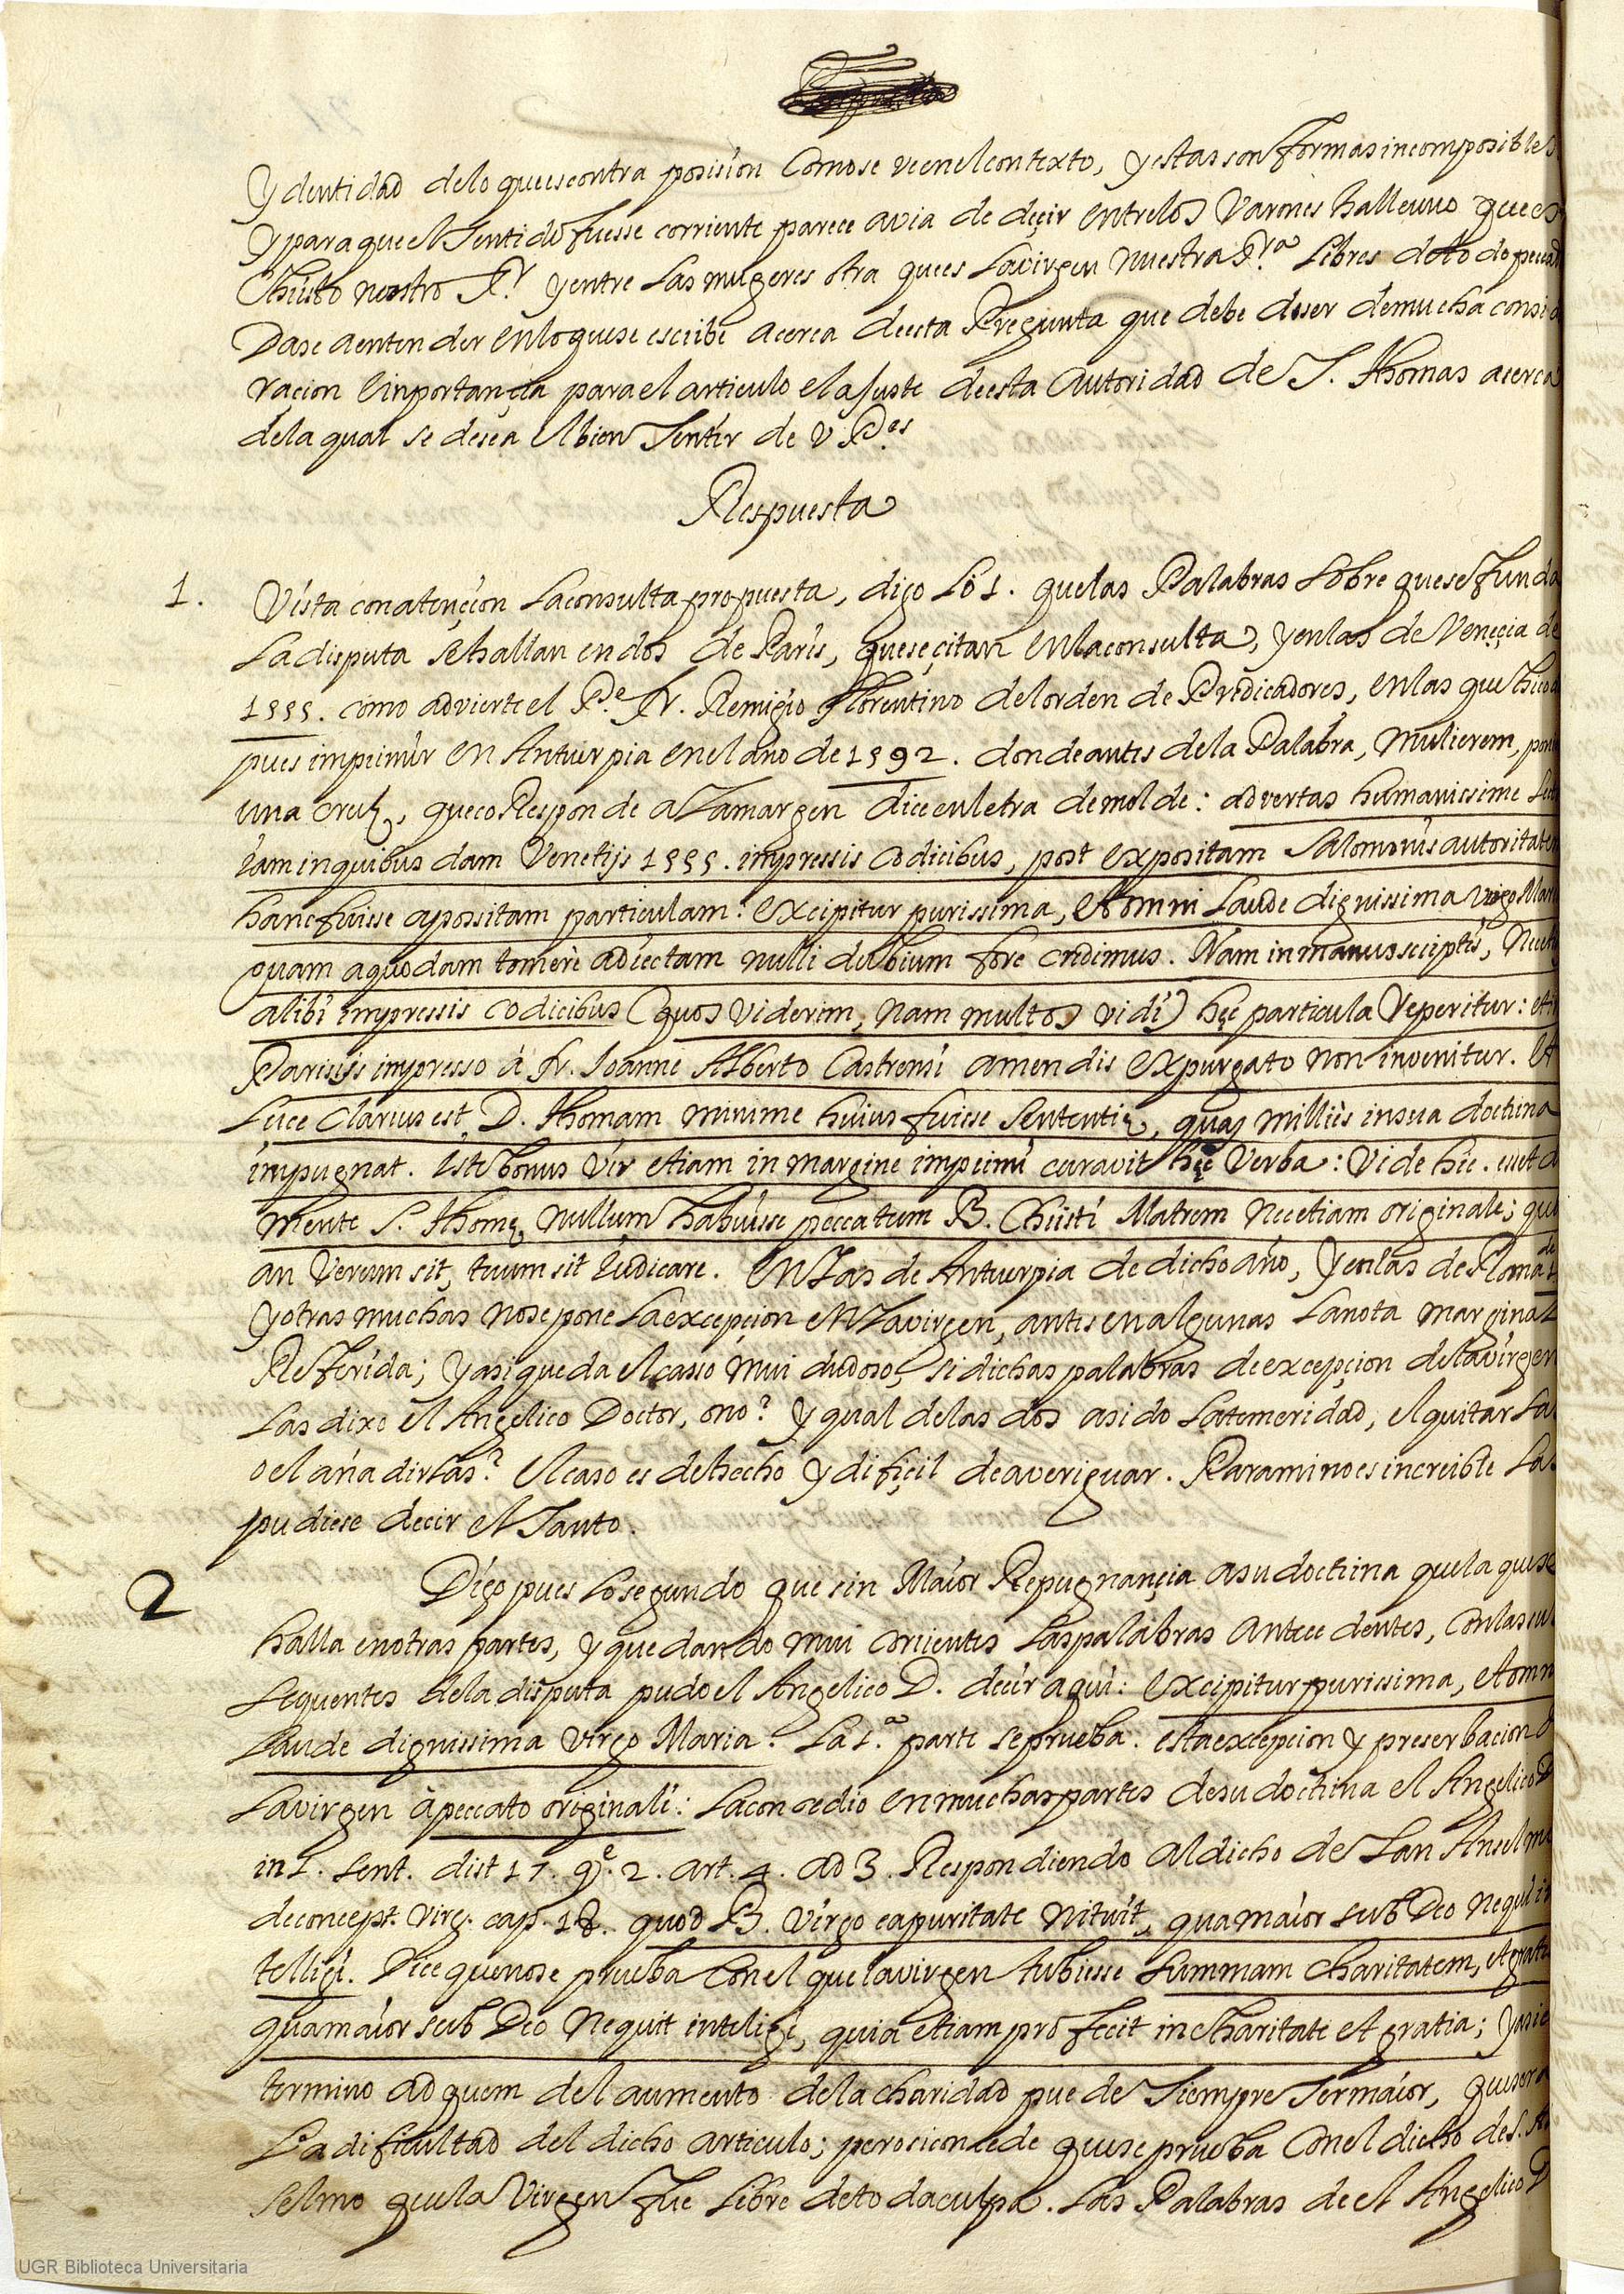 Respuesta
Ydentidad delo que es contra posision Como se vee en el contexto, y estas son formas incomposibles
y para que el sentido fuesse corriente parece avia de deçir entre los Varones halle uno que es
Christo nuestro Sr. y entre las mugeres otra que es la virgen nuestra Sra. libres de todo peccad
Dase a entender en lo que se escribe acerca de esta Pregunta que debe de ser de mucha consid
raçion e inportançia para el articulo el ajuste de esta autoridad de S. Thomas acerca
de la qual se desea el bien sentir de V. Pes
Respuesta
1. Vista con atençion la consulta propuesta, digo lo 1. que las Palabras sobre que se funda
la disputa se hallan en dos de Paris, que se çitan en la consulta, y en las de Veneçia de
1555. como advierte el Pe. Fr. Remigio Florentino del orden de Predicadores, en las que hiço
pues imprimir en Anturpia en el año de 1592. donde antes de la Palabra, Mulierem, pon
una cruz, que corresponde a la margen dice en letra de molde: advertas humanissime Lect
iam in quibusdam Venetijs 1555. impressis codicibus, post expositam Salomonis autoritatem
hanc fuisse apossitam particulam: excipitur purissima, et omni laude dignissima virgo Mari
quam a quodam temere adiectam nulli dubium fore credimus. Nam in manuscriptis, nec
alibi impressis codicibus (quos viderim, nam multos vidi) hęc particula reperitur: et
Parisijs impresso á fr. Joanne Alberto Castrensi amendis expurgato non invenitur. Et
Luce clarius est, D. Thomam minime huius fuisse sententię, quaz milliès in sua doctrina
impugnat. iste bonus vir etiam in margine imprimi curavit hęc verba: vide hic. au et d
mente S. Thomę, nullum habuisse peccatum B. Christi Matrem nec etiam originale; quo
an verum sit, tuum sit iudicare. en las de Anturpia de dicho año, y en las de Roma de
y otras muchas no se pone la excepçion en la virgen, antes en algunas la nota marginal
Referida; y asi queda el casso mui dudoso, si dichas palabras de excepçion de la virgen
las dixo el Angelico Doctor, o no? y qual de las dos a sido la temeridad, el quitar las
o el añadirlas? el caso es de hecho y difiçil de averiguar. Para mi no es increible las
pudiese decir el Santo.
2 Digo pues lo segundo que sin maior Repugnançia a su doctrina que la que se
halla en otras partes, y quedando mui corrientes las palabras antecedentes, con las su
sequentes de la disputa pudo el Angelico D. decir aqui: excipitur purissima, et omn
laude dignissima virgo Maria. La 1.ª parte se prueba: esta excepcion y preserbacion d
la virgen à peccato originali: la concedio en muchas partes de su doctrina el Angelico D
in 1. Sent. dist 17. qe. 2. art. 4. ad 3. Respondiendo al dicho de San Anselmo
de concept. virg. cap. 18. quod B. virgo ea puritate nituit, qua maior sub Deo nequit in
telligi. Dice que no se prueba con el que la virgen tubiesse summam charitatem, et grati
qua maior sub Deo nequit inteligi, quia etiam profecit in charitate et gratia; y asi e
termino ad quem del aumento de la charidad puede siempre ser maior, que era
La dificultad del dicho articulo; pero concede que se prueba con el dicho de S. An
selmo que la Virgen fue libre de toda culpa. Las Palabras de el Angelico D
UGR Biblioteca Universitaria